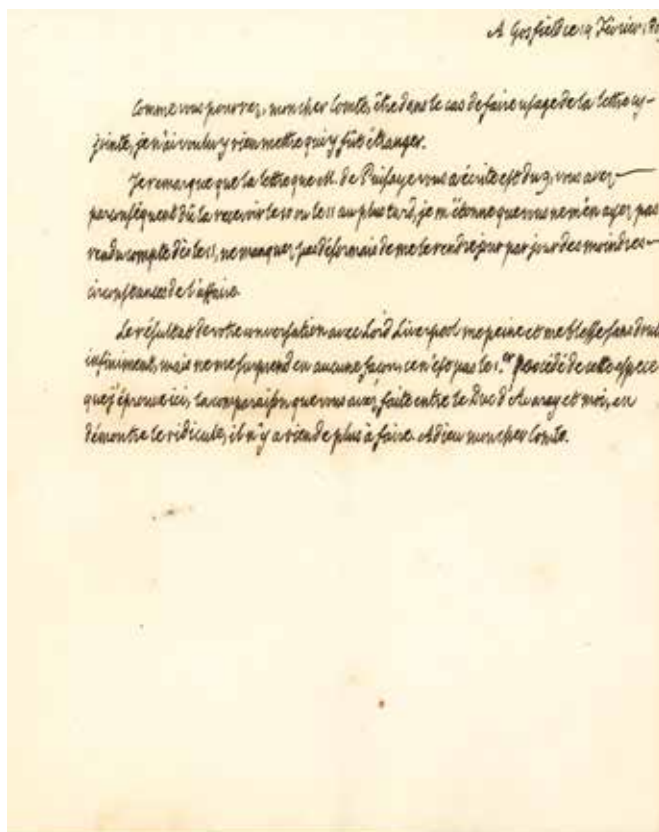 A Gosfield ce 19 Février 180
Comme vous pourrez, mon cher Comte, être dans le cas de faire usage de la lettre cy-
jointe, je n'ai voulu y rien mettre qui y fût étranger.
Je remarque que la lettre que M. de Puisaye vous a écrite est du 9, vous avez
par conséquent dû la recevoir le 10 ou le 11 au plus tard, je m'étonne que vous ne m'en ayez pas
rendu compte dès le 11, ne manquez pas désormais de me le rendre jour par jour des moindres
circonstances de l'affaire.
Le résultat de votre conversation avec Lord Liverpool me peine et me blesse sans doute
infiniment, mais ne me surprend en aucune façon, ce n'est pas le 1.er procédé de cette espece
que j'éprouve ici, la comparaison que vous avez faite entre le Duc d'Avaray et moi, en
démontre le ridicule, il n'y a rien de plus à faire. Adieu mon cher Comte.